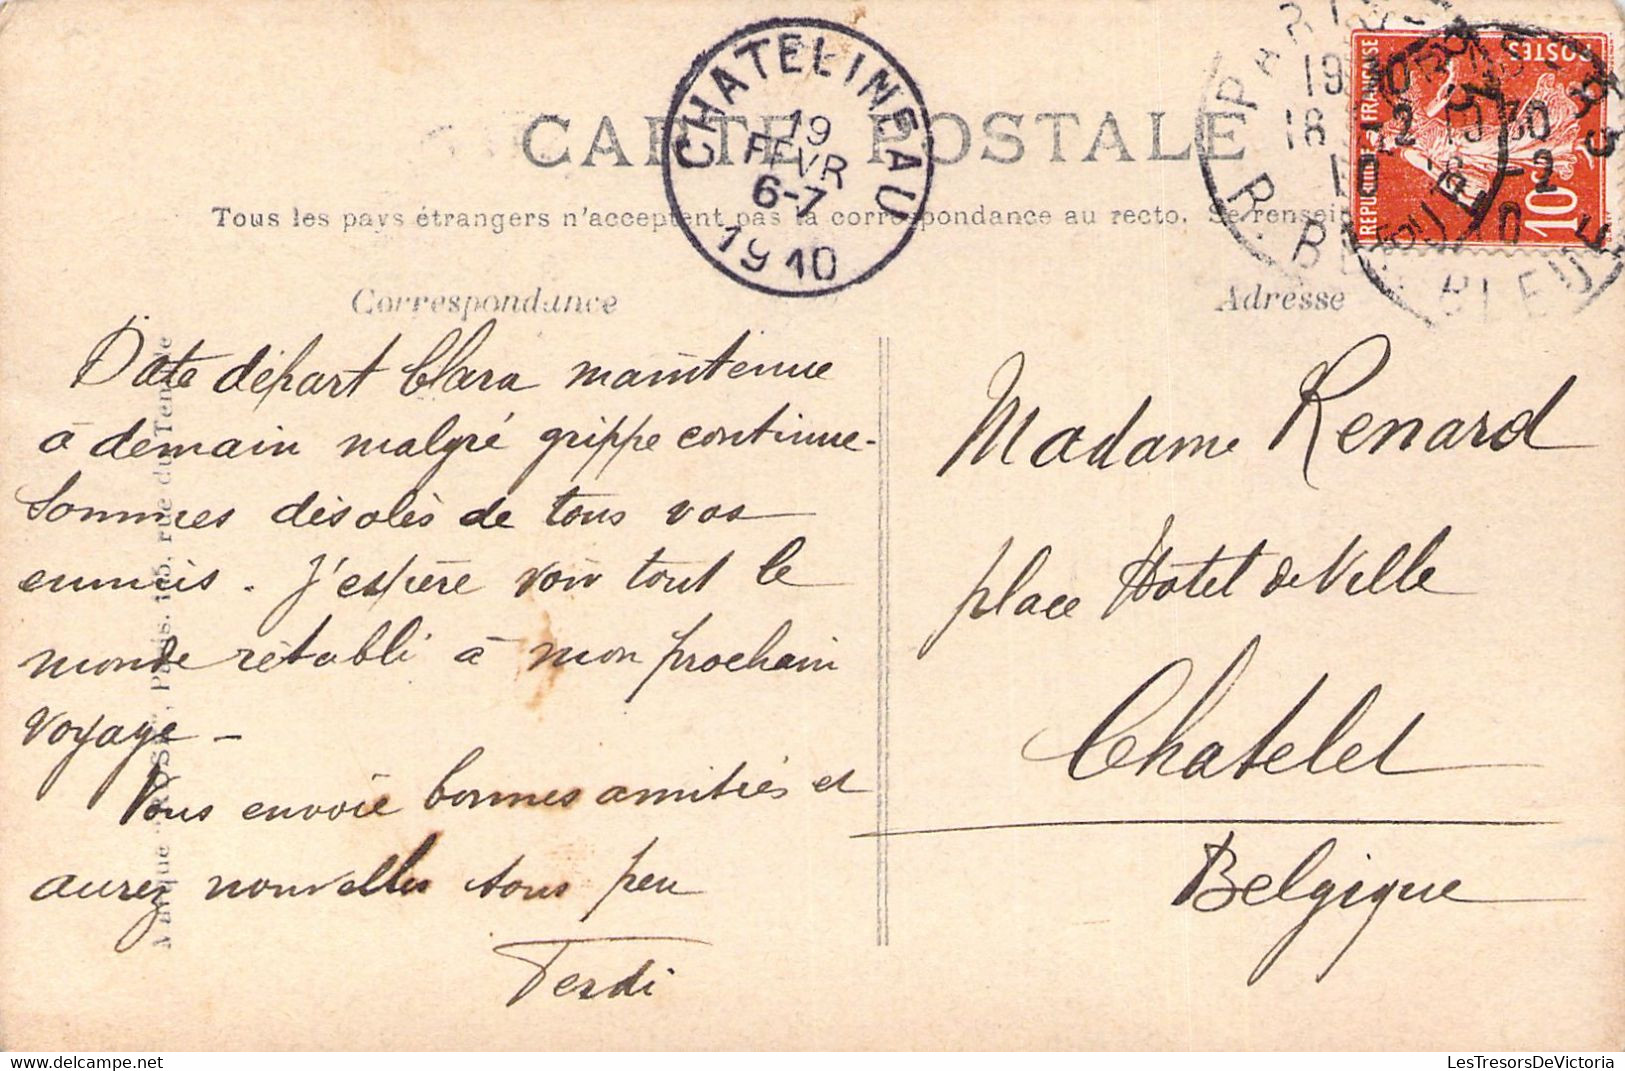 CARTE POSTALE
Tous les pays étrangers n'acceptent pas la correspondance au recto. Se renseig
CHATELINEAU
19
FEVR
6-7
1910
PARIS
19 30
18 -2
10
R. BLEUE
PARIS
19 30
18 -2
10
R. BLEUE
REPUBLIQUE FRANÇAISE
POSTES
10c
Correspondance
Adresse
Date départ Clara maintenue
à demain malgré grippe continue-
Sommes désolés de tous vos
ennuis. J'espère voir tout le
monde rétabli à mon prochain
voyage -
Vous envoie bonnes amitiés et
aurez nouvelles sous peu
Ferdi
Madame Renard
place Hotel de Ville
Chatelet
Belgique
rue du Temple
LesTresorsDeVictoria